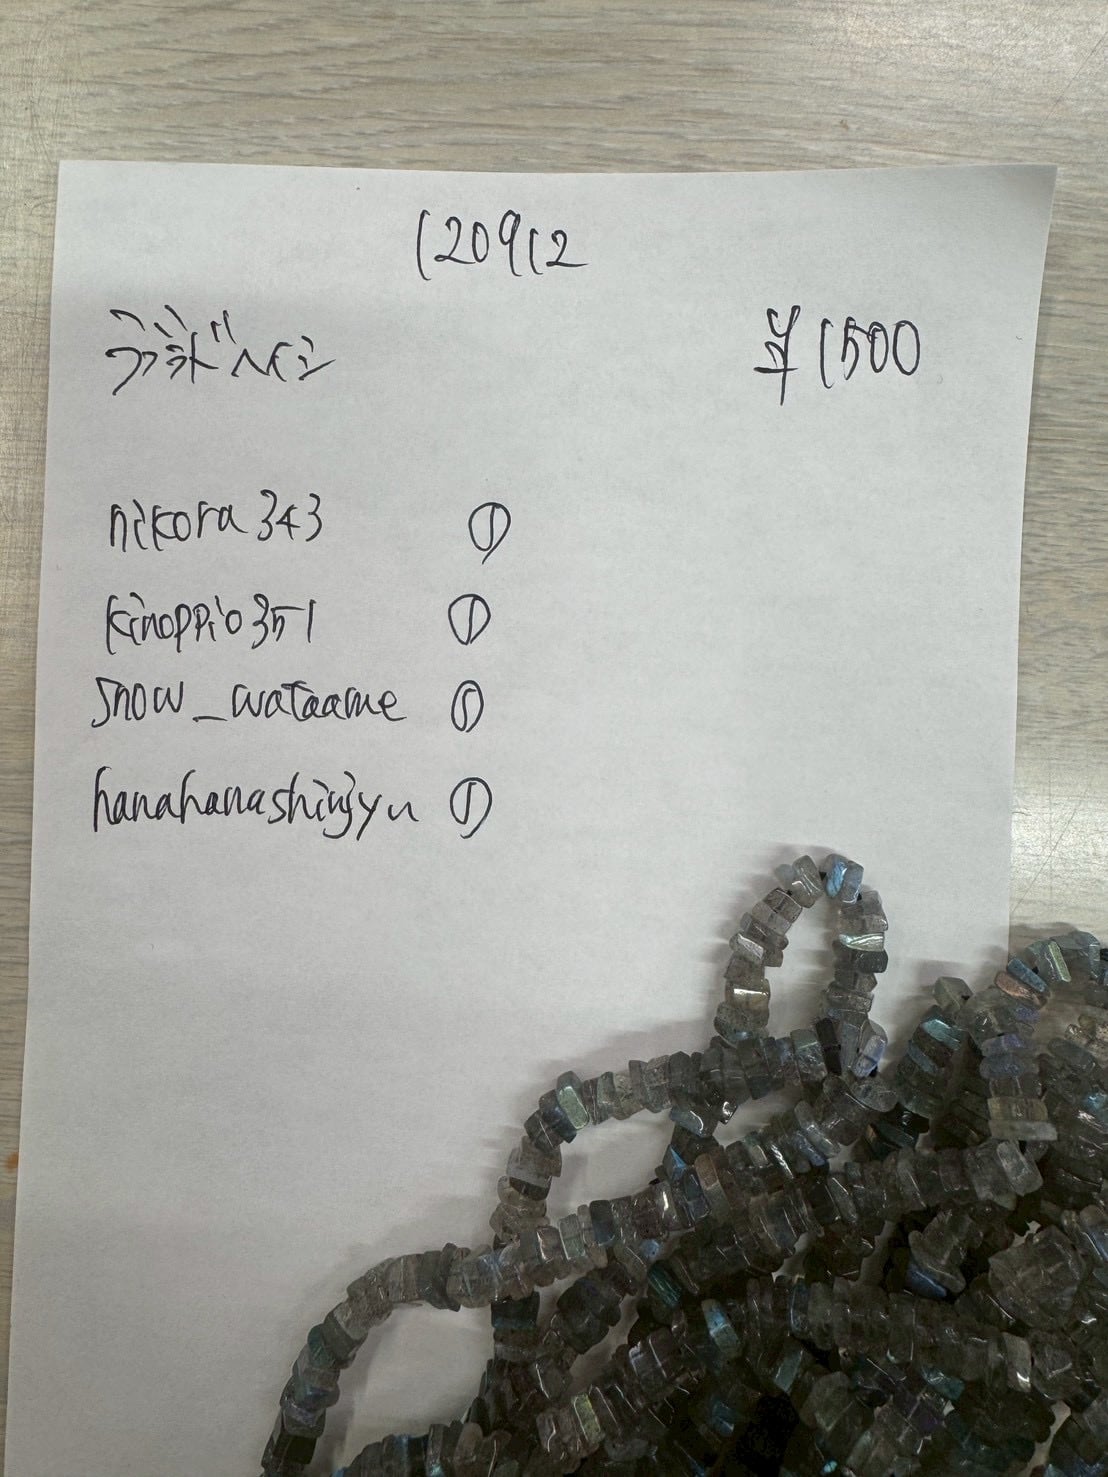 120912
ラブラドライト
¥1500
nikora343 ①
kinoppio351 ①
snow_wataame ①
hanahanashinjyu ①